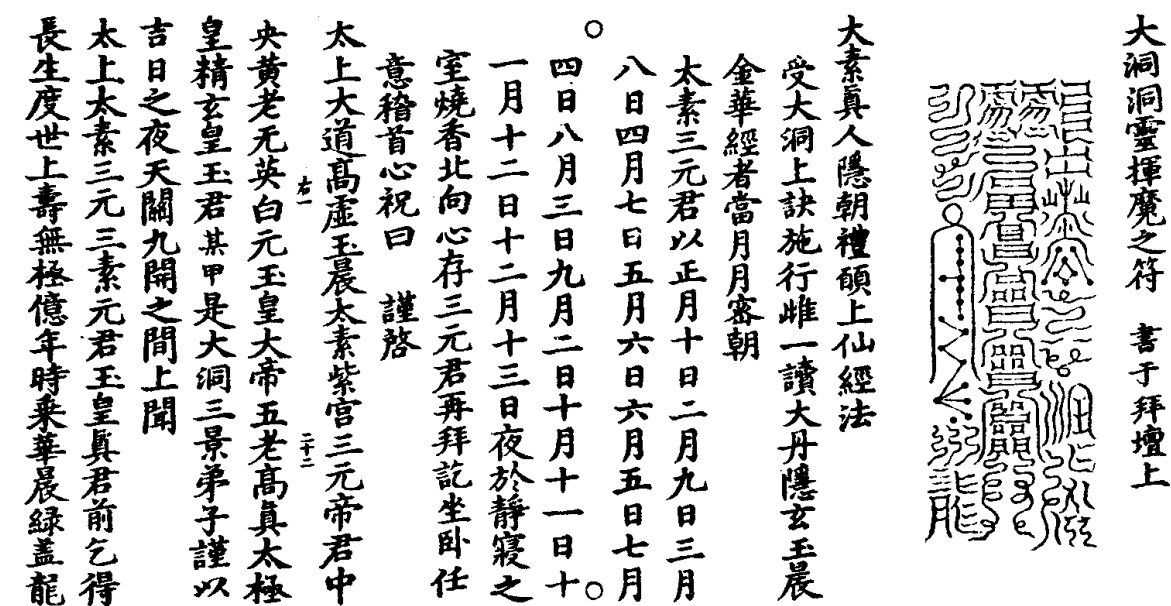 大洞洞靈揮魔之符　書于拜壇上
大素眞人隱朝禮願上仙經法
受大洞上訣施行雌一讀大丹隱玄玉晨
金華經者當月月密朝
太素三元君以正月十日二月九日三月
八日四月七日五月六日六月五日七月
四日八月三日九月二日十月十一日十
一月十二日十二月十三日夜於靜寢之
室燒香北向心存三元君再拜訖坐卧任
意稽首心祝曰　謹啓
太上大道高虛玉晨太素紫宫三元帝君中
右一
二十二
央黄老无英白元玉皇大帝五老高真太極
皇精玄皇玉君某甲是大洞三景弟子謹以
吉日之夜天關九開之間上聞
太上太素三元三素元君玉皇眞君前乞得
長生度世上壽無極億年時乗華晨緑盖龍